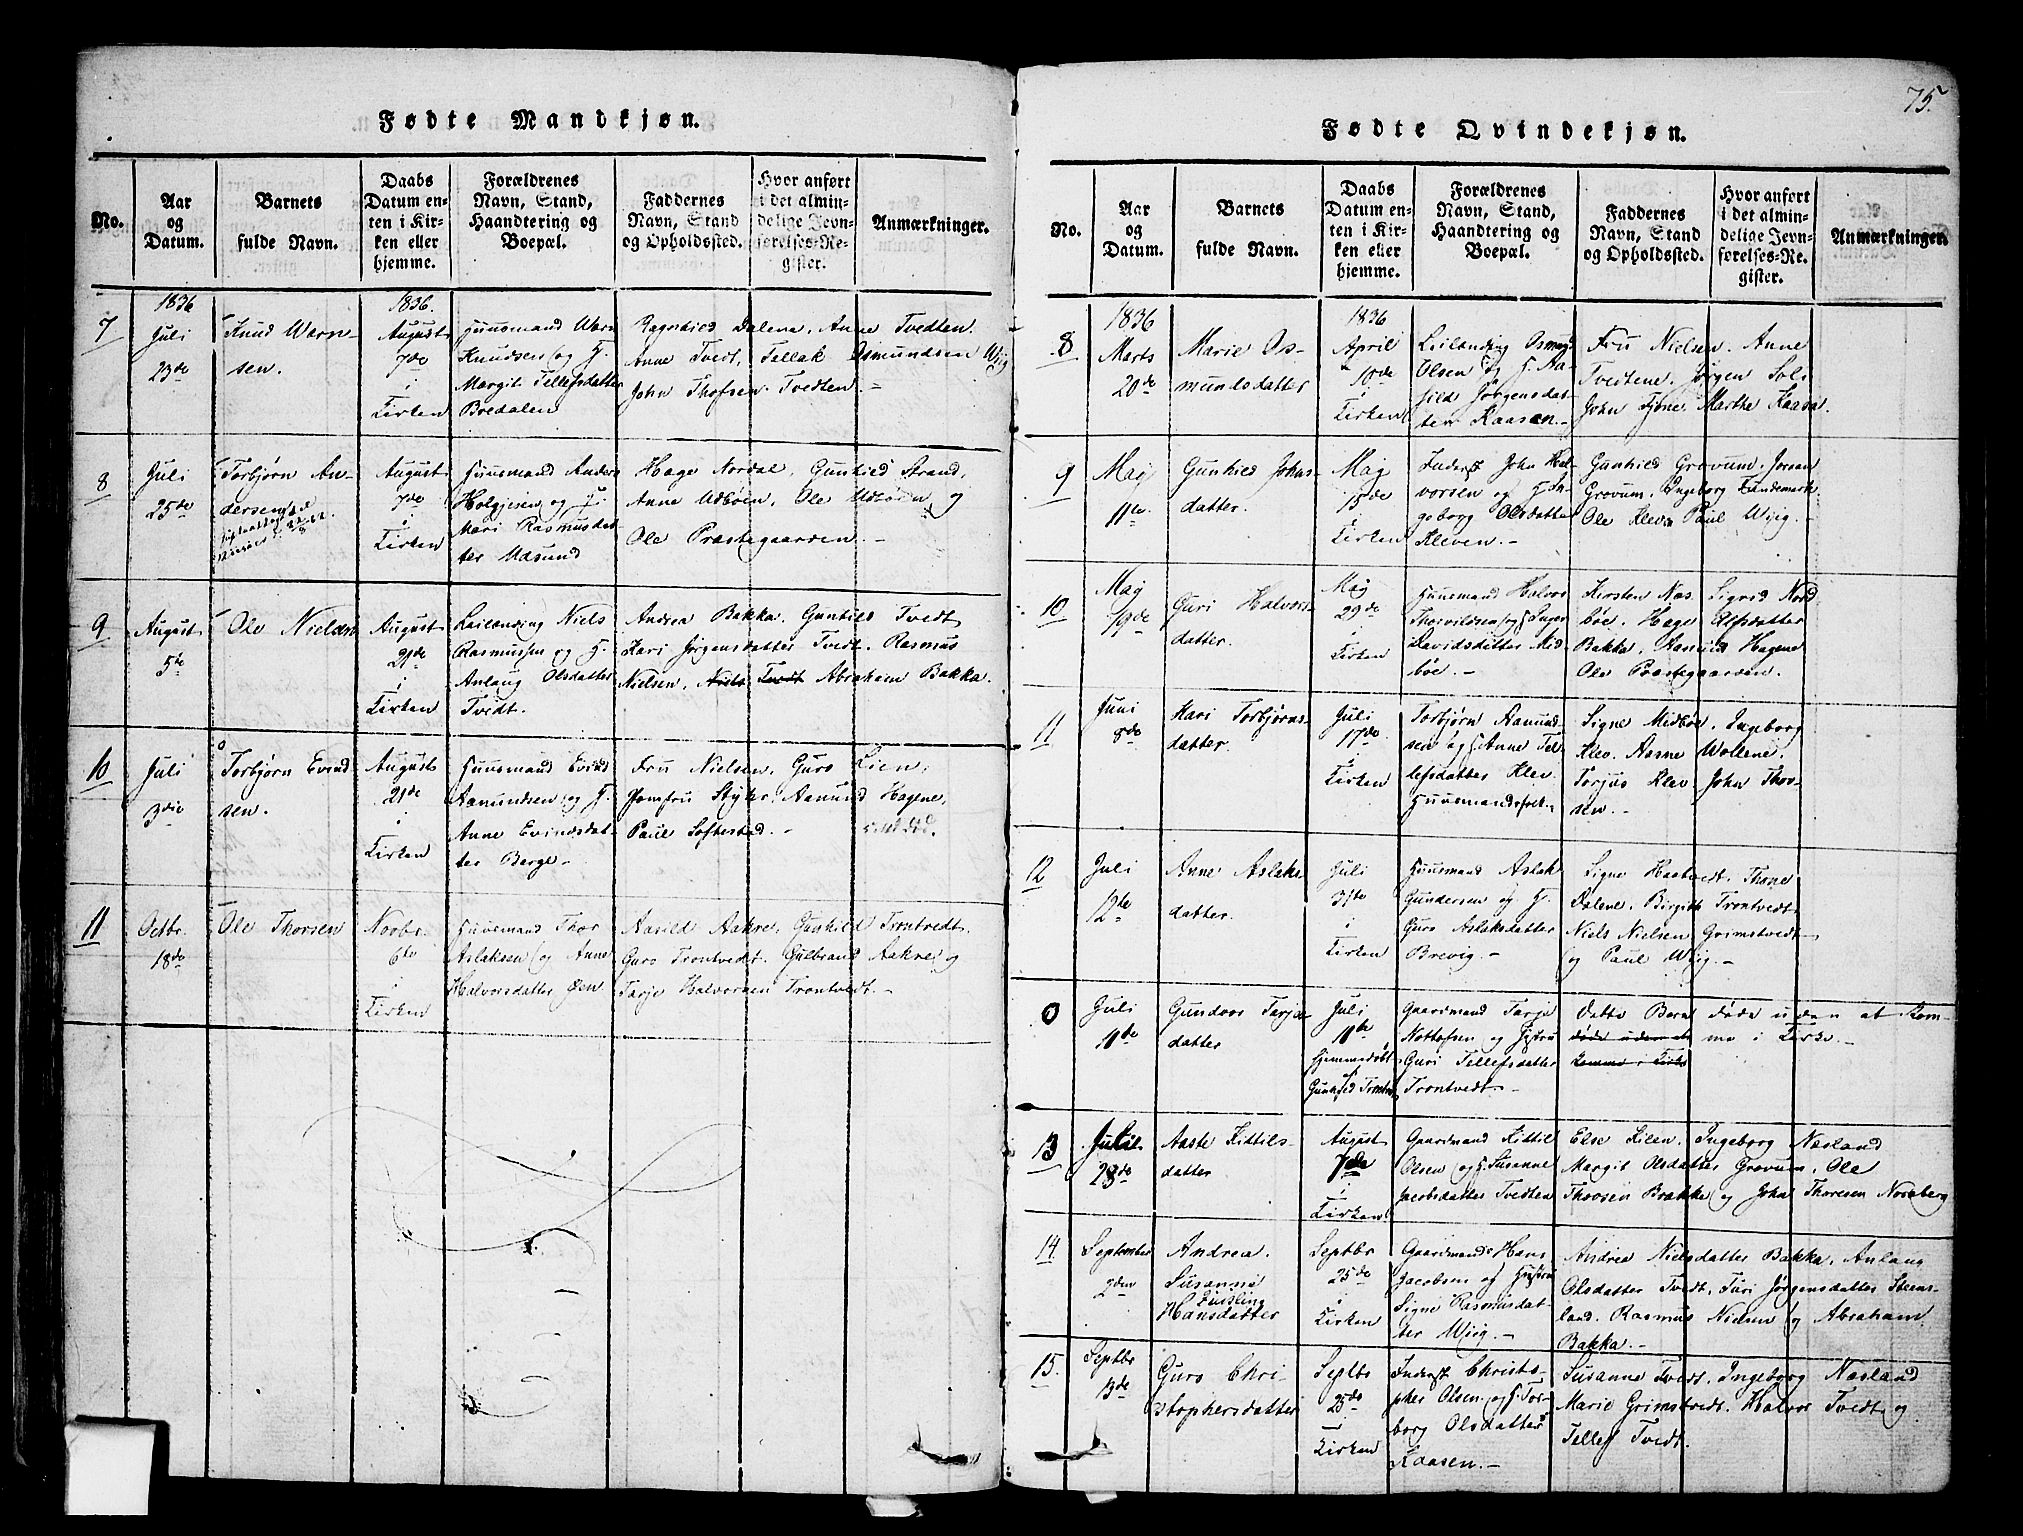 75.
Fødte Mandkjøn.
No.
Aar og Datum.
Barnets fulde Navn.
Daabs Datum enten i Kirken eller hjemme.
Forældrenes Navn, Stand, Haandtering og Boepæl.
Faddernes Navn, Stand og Opholdssted.
Hvor anført i det almindelige Jevnførelses-Register.
Anmærkninger.
7
1836
Juli
23de
Knud Warn-
sen.
1836.
August
7de
i
Kirken
Huusmand Warn
Knudsen og H.
Margit Tellefsdatter
Bredalen
Ragndied Dalene, Anne Tvedten.
Anne Tvedt, Tellak Osmundsen Wiig
John Thofsen Tvedten. -
8
Juli
25de
Torbjørn An-
dersen
August
7de
i
Kirken
Huusmand Anders
Holgjesen og H.
Mari Rasmusdat
ter Udsund
Hage Nordal, Gunhied Strand,
Anne Udbøen, Ole Udbøen og
Ole Præstegaarden. -
9
August
5te
Ole Nielsen
August
21de
i
Kirken
Leilænding Niels
Rasmussen og H.
Anlaug Olsdatter
Tvedt.
Andrea Bakka, Gunhild Tvedt
Kari Jørgensdatter Tvedt, Rasmus
Nielsen, Niels Tvedt Abraham Bakka.
10
Juli
3die
Torbjørn Evind
sen.
August
21de
i
Kirken
Huusmand Evind
Aamundsen og H.
Anne Evindsdat
ter Berge -
Fru Nielsen, Guro Lien,
Jomfru Styler, Aamund Hagene,
Paul Softestad. -
11
Octbr.
18de
Ole Thorsen
Novbr.
6te
i
Kirken
Huusmand Thor
Aslaksen og Anne
Halvorsdatter Øen
Aasild Aakre, Gunhild Trontvedt,
Guro Trontvedt. Gulbrand Aakre og
Tarje Halvorsen Trontvedt. -
Fødte Qvindekjøn.
No.
Aar og Datum.
Barnets fulde Navn.
Daabs Datum enten i Kirken eller hjemme.
Forældrenes Navn, Stand, Haandtering og Boepæl.
Faddernes Navn, Stand og Opholdssted.
Hvor anført i det almindelige Jevnførelses-Register.
Anmærkninger.
8
1836
Marts
20de
Marie Os-
mundsdatter
1836
April
10de
i
Kirken
Leilænding Osmund
Olsen og H. Aa-
sild Jørgensdat-
ter Kaasen. -
Fru Nielsen. Anne
Tvedtene, Jørgen Sols
John Tjøne, Marthe Kaasa.
9
Maj
11te
Gunhied Johns-
datter.
Maj
15de
i
Kirken
Inderst John Hal-
vorsen og H. In-
geborg Olsdatter
Kleven. -
Gunhied Grovum, Joran
Grovum, Ingeborg Landemark
Ole Kleva Paul Wiig. -
10
Maj
19de
Guri Halvors-
datter.
Maj
29de
i
Kirken
Huusmand Halvor
Thorvildsen og H. Inger
Davidsdatter Mid
bøe. -
Kirsten Næs. Sigrid Nord
bøe. Hage Alfsdatter
Bakka, Aamund Hagene
Ole Præstegaarden.
11
Juni
8de
Kari Torbjørns-
datter.
Juli
17de
i
Kirken
Torbjørn Aamund-
sen og H Anne Tel-
lefsdatter Klev.
Huusmandsfolk. -
Signe Midbøe. Ingeborg
Klev. Aasne Wollene.
Torjus Klev John Thor-
sen. -
12
Juli
12te
Anne Aslaks-
datter.
Juli
31te
i
Kirken
Huusmand Aslak
Gundersen og H.
Guro Aslaksdatter
Brevig. -
Signe Haatvedt, Thone
Dalene, Birgith Trontvedt
Niels Nielsen Grimstvedt
og Paul Wiig. -
0
Juli
11te
Gundvor Tarje-
datter
Juli
11te
Hjemmedøbt
af
Gunhild Trontv.
Gaardmand Tarje
Nottofsen og Hustru
Guri Tellefsdatter
Trontvedt -
Dette Barn døde uden at kom-
døde uden at me i Kirke. -
komme i Kirke
13
Juli
23de
Aaste Kittils-
datter
August
7de
i
Kirken
Gaardmand Kittil
Olsen og H. Susanne
Jacobsdatter Tvedten
Else Kilen, Ingeborg Næsland
Margit Olsdatter Grovum, Ole
Thorsen Brakke og John Thoresen Noreberg
14
September
2den
Andrea
Susanne
Qvisling
Hansdatter
Septbr
25de
i
Kirken
Gaardmand Hans
Jacobsen og Hustru
Signe Rasmusdat-
ter Wiig. -
Andrea Nielsdatter Bakka, Anlaug
Olsdatter Tvedt, Turi Jørgensdatter Steens-
land. Rasmus Nielsen og Abraham
Bakka. -
15.
Septbr
13de
Guro Chri-
stophersdatter
Septbr
25de
i
Kirken
Inderst Christo-
pher Olsen og H. Tor-
borg Olsdatter
Kaasen. -
Susanne Tvedt, Ingeborg Næsland
Marie Grimstvedt. Halvor Tvedt og
Tellef Tvedt.